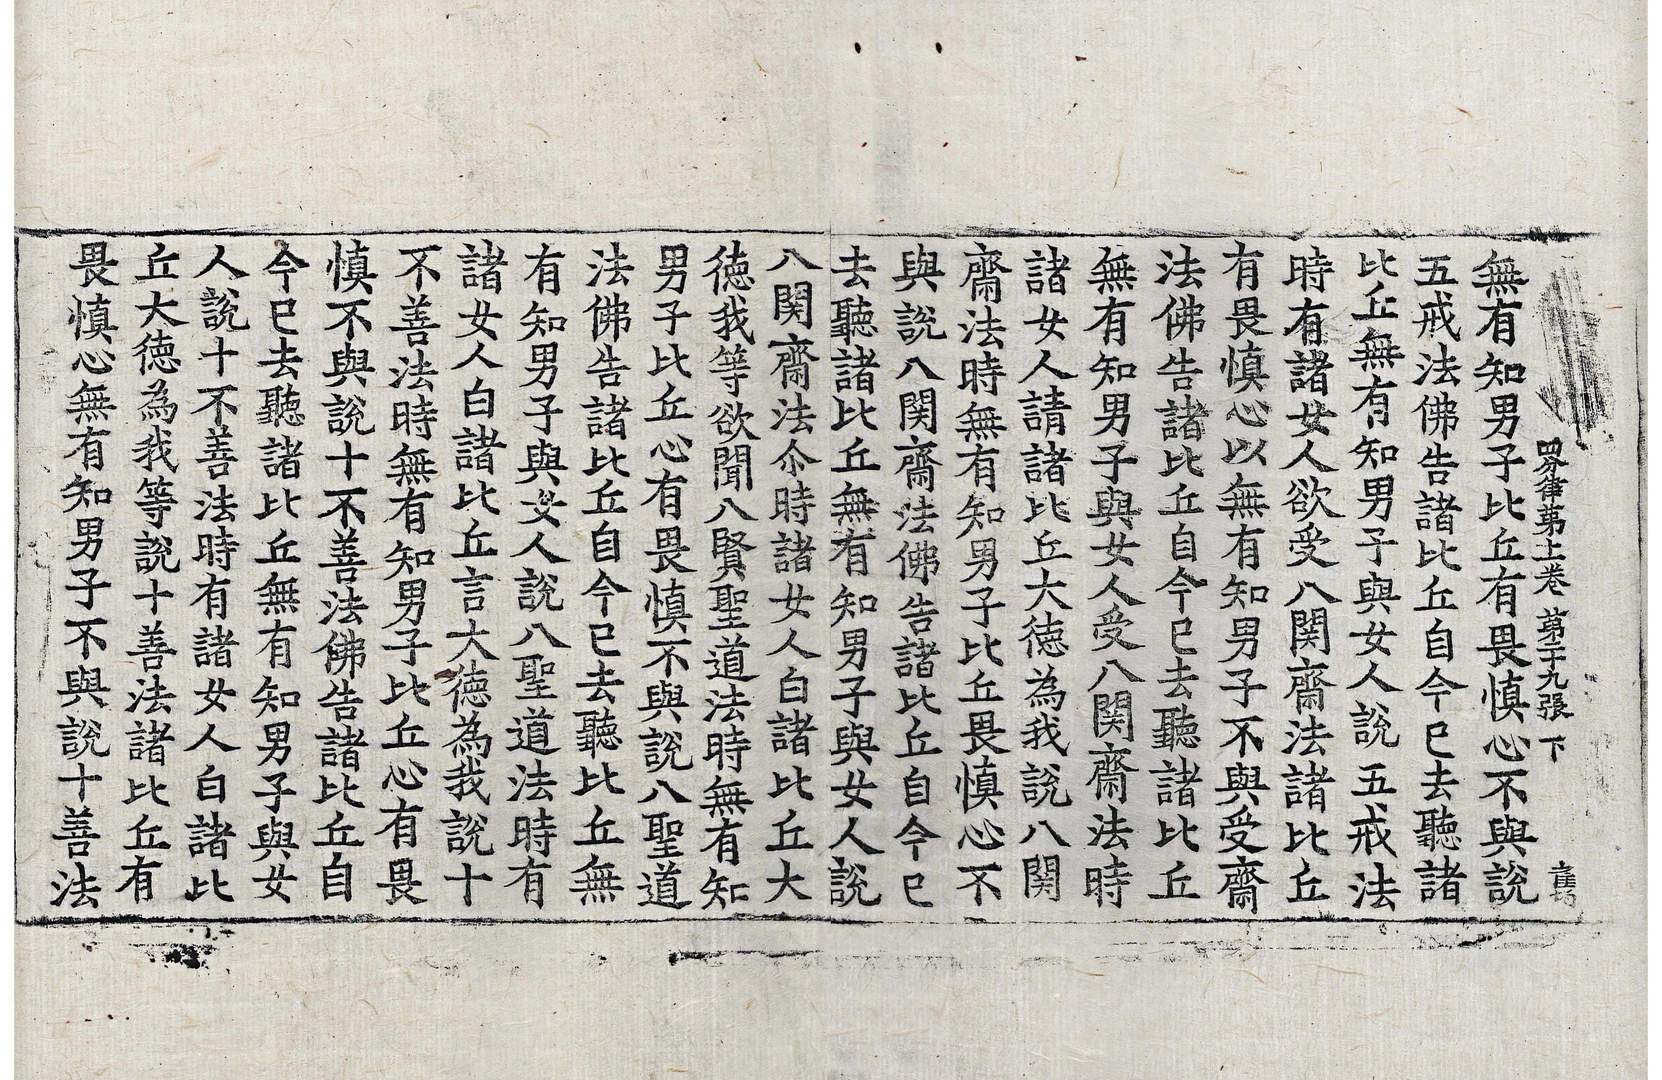 四分律第十一卷 第十九張 下
無有知男子比丘有畏慎心不與說
五戒法佛告諸比丘自今已去聽諸
比丘無有知男子與女人說五戒法
時有諸女人欲受八関齋法諸比丘
有畏慎心以無有知男子不與受齋
法佛告諸比丘自今已去聽諸比丘
無有知男子與女人受八関齋法時
諸女人請諸比丘大徳為我說八関
齋法時無有知男子比丘畏慎心不
與說八関齋法佛告諸比丘自今已
去聽諸比丘無有知男子與女人說
八関齋法尒時諸女人白諸比丘大
徳我等欲聞八賢聖道法時無有知
男子比丘心有畏慎不與說八聖道
法佛告諸比丘自今已去聽比丘無
有知男子與女人說八聖道法時有
諸女人白諸比丘言大徳為我說十
不善法時無有知男子比丘心有畏
慎不與說十不善法佛告諸比丘自
今已去聽諸比丘無有知男子與女
人說十不善法時有諸女人白諸比
丘大徳為我等說十善法諸比丘有
畏慎心無有知男子不與說十善法